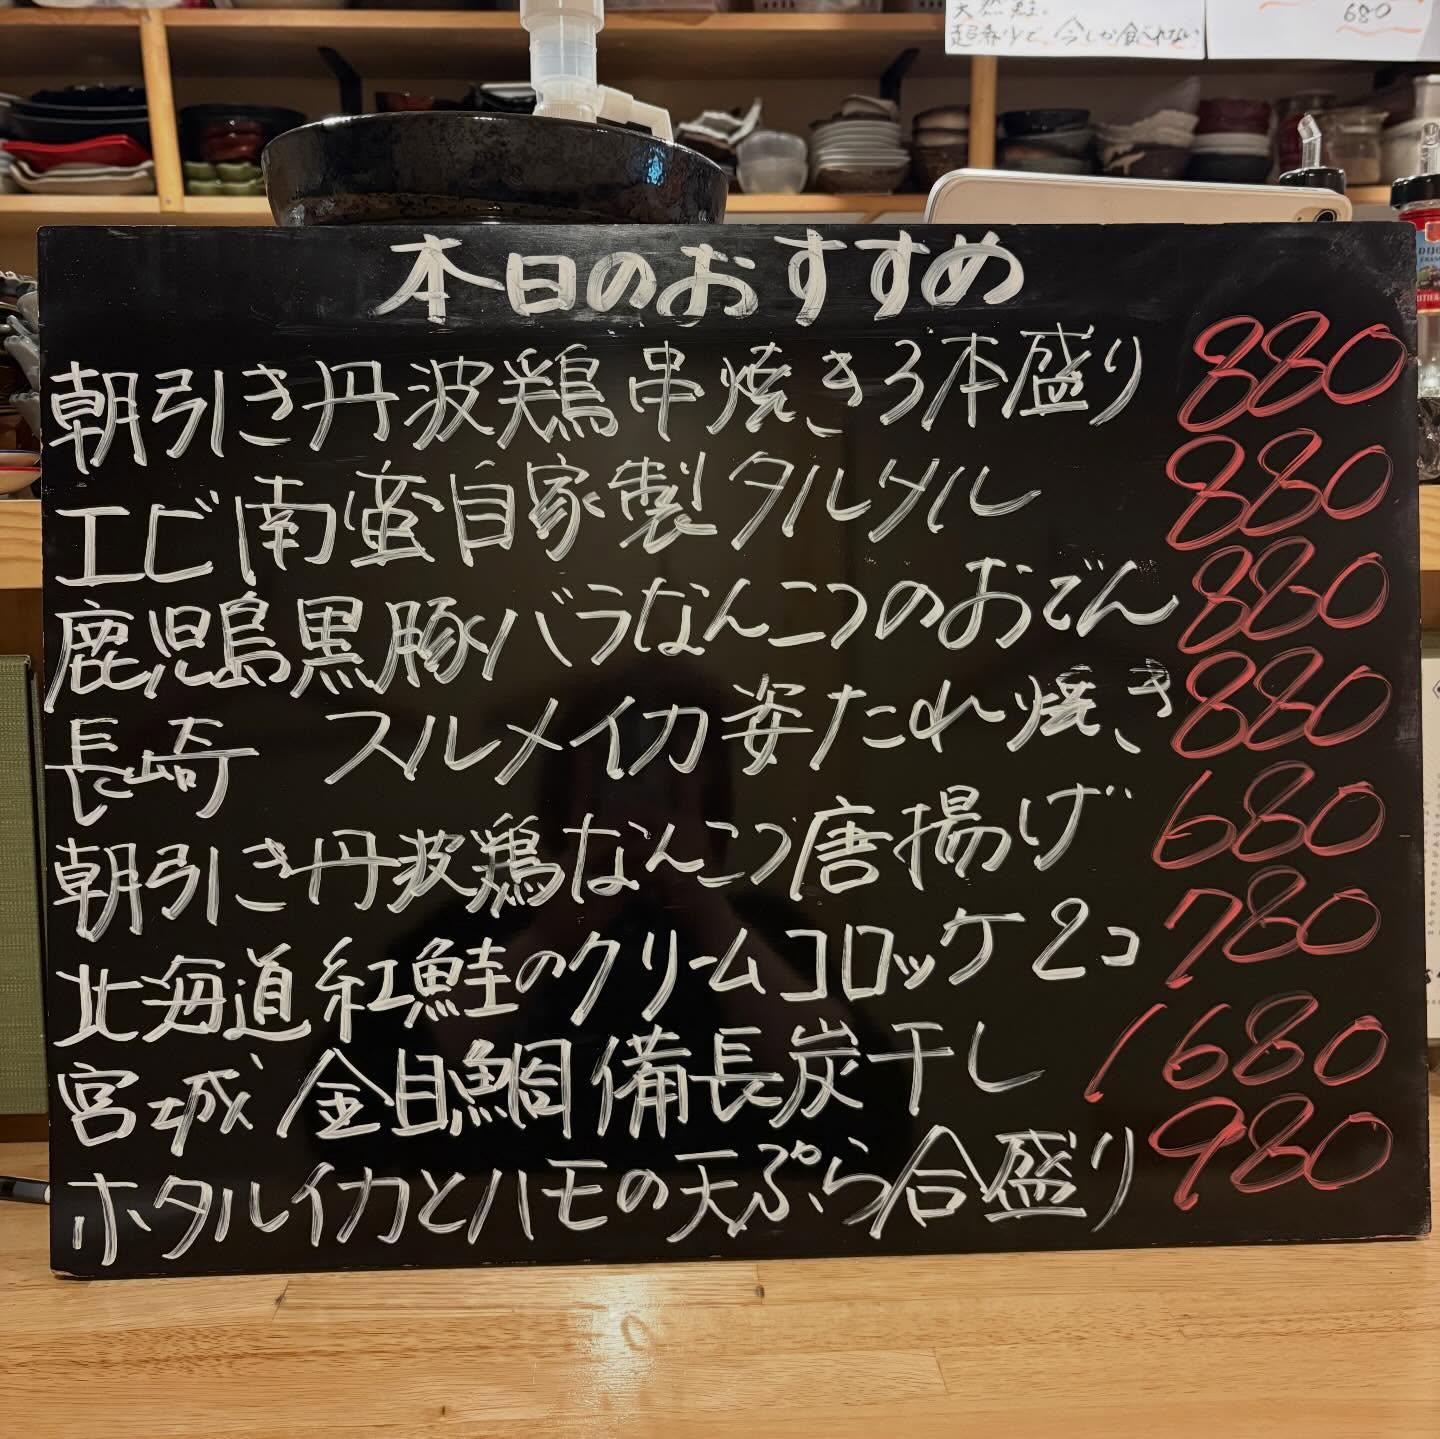 天然
超希少で、今しか食べれない
680
本日のおすすめ
朝引き丹波鶏串焼き3本盛り 880
エビ南蛮自家製タルタル 880
鹿児島黒豚バラなんこつのおでん 880
長崎 スルメイカ姿たれ焼き 880
朝引き丹波鶏なんこつ唐揚げ 680
北海道紅鮭のクリームコロッケ2コ 780
宮城 金目鯛備長炭干し 1680
ホタルイカとハモの天ぷら合盛り 980